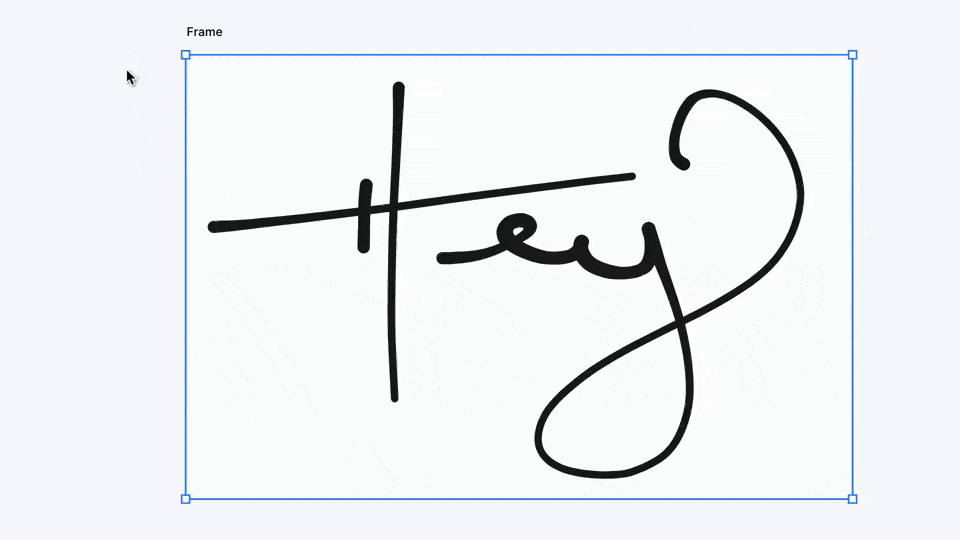 Frame
Hey